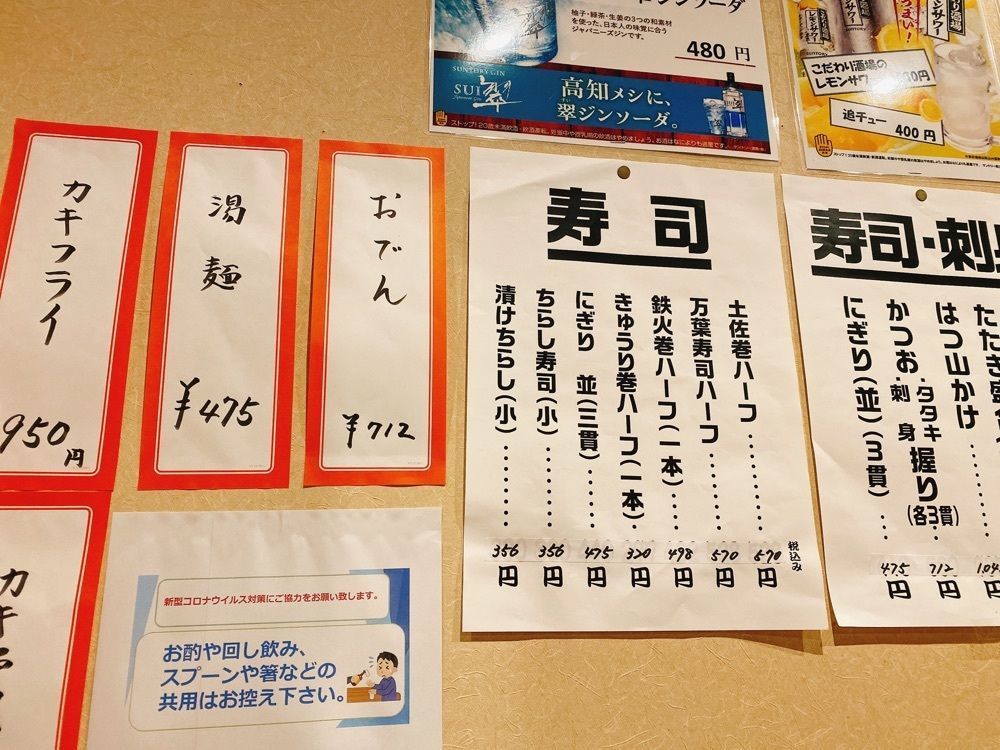 ジンソーダ
柚子・緑茶・生姜の3つの和素材
を使った、日本人の味覚に合う
ジャパニーズジンです。
480 円
SUNTORY GIN
SUI 翠
高知メシに、
翠ジンソーダ。
こだわり酒場の
レモンサワー
追チュー
400円
カキフライ
950円
湯麺
¥475
おでん
¥712
寿司
土佐巻ハーフ……… 570円
万葉寿司ハーフ……… 570円
鉄火巻ハーフ(一本)…… 498円
きゅうり巻ハーフ(一本)… 320円
にぎり 並(三貫)…… 475円
ちらし寿司(小)……… 356円
漬けちらし(小)……… 356円
税込み
寿司・刺
はつ山かけ
かつお・刺身・タタキ握り(各3貫) 712円
にぎり(並)(3貫)… 475円
新型コロナウイルス対策にご協力をお願い致します。
お酌や回し飲み、
スプーンや箸などの
共用はお控え下さい。